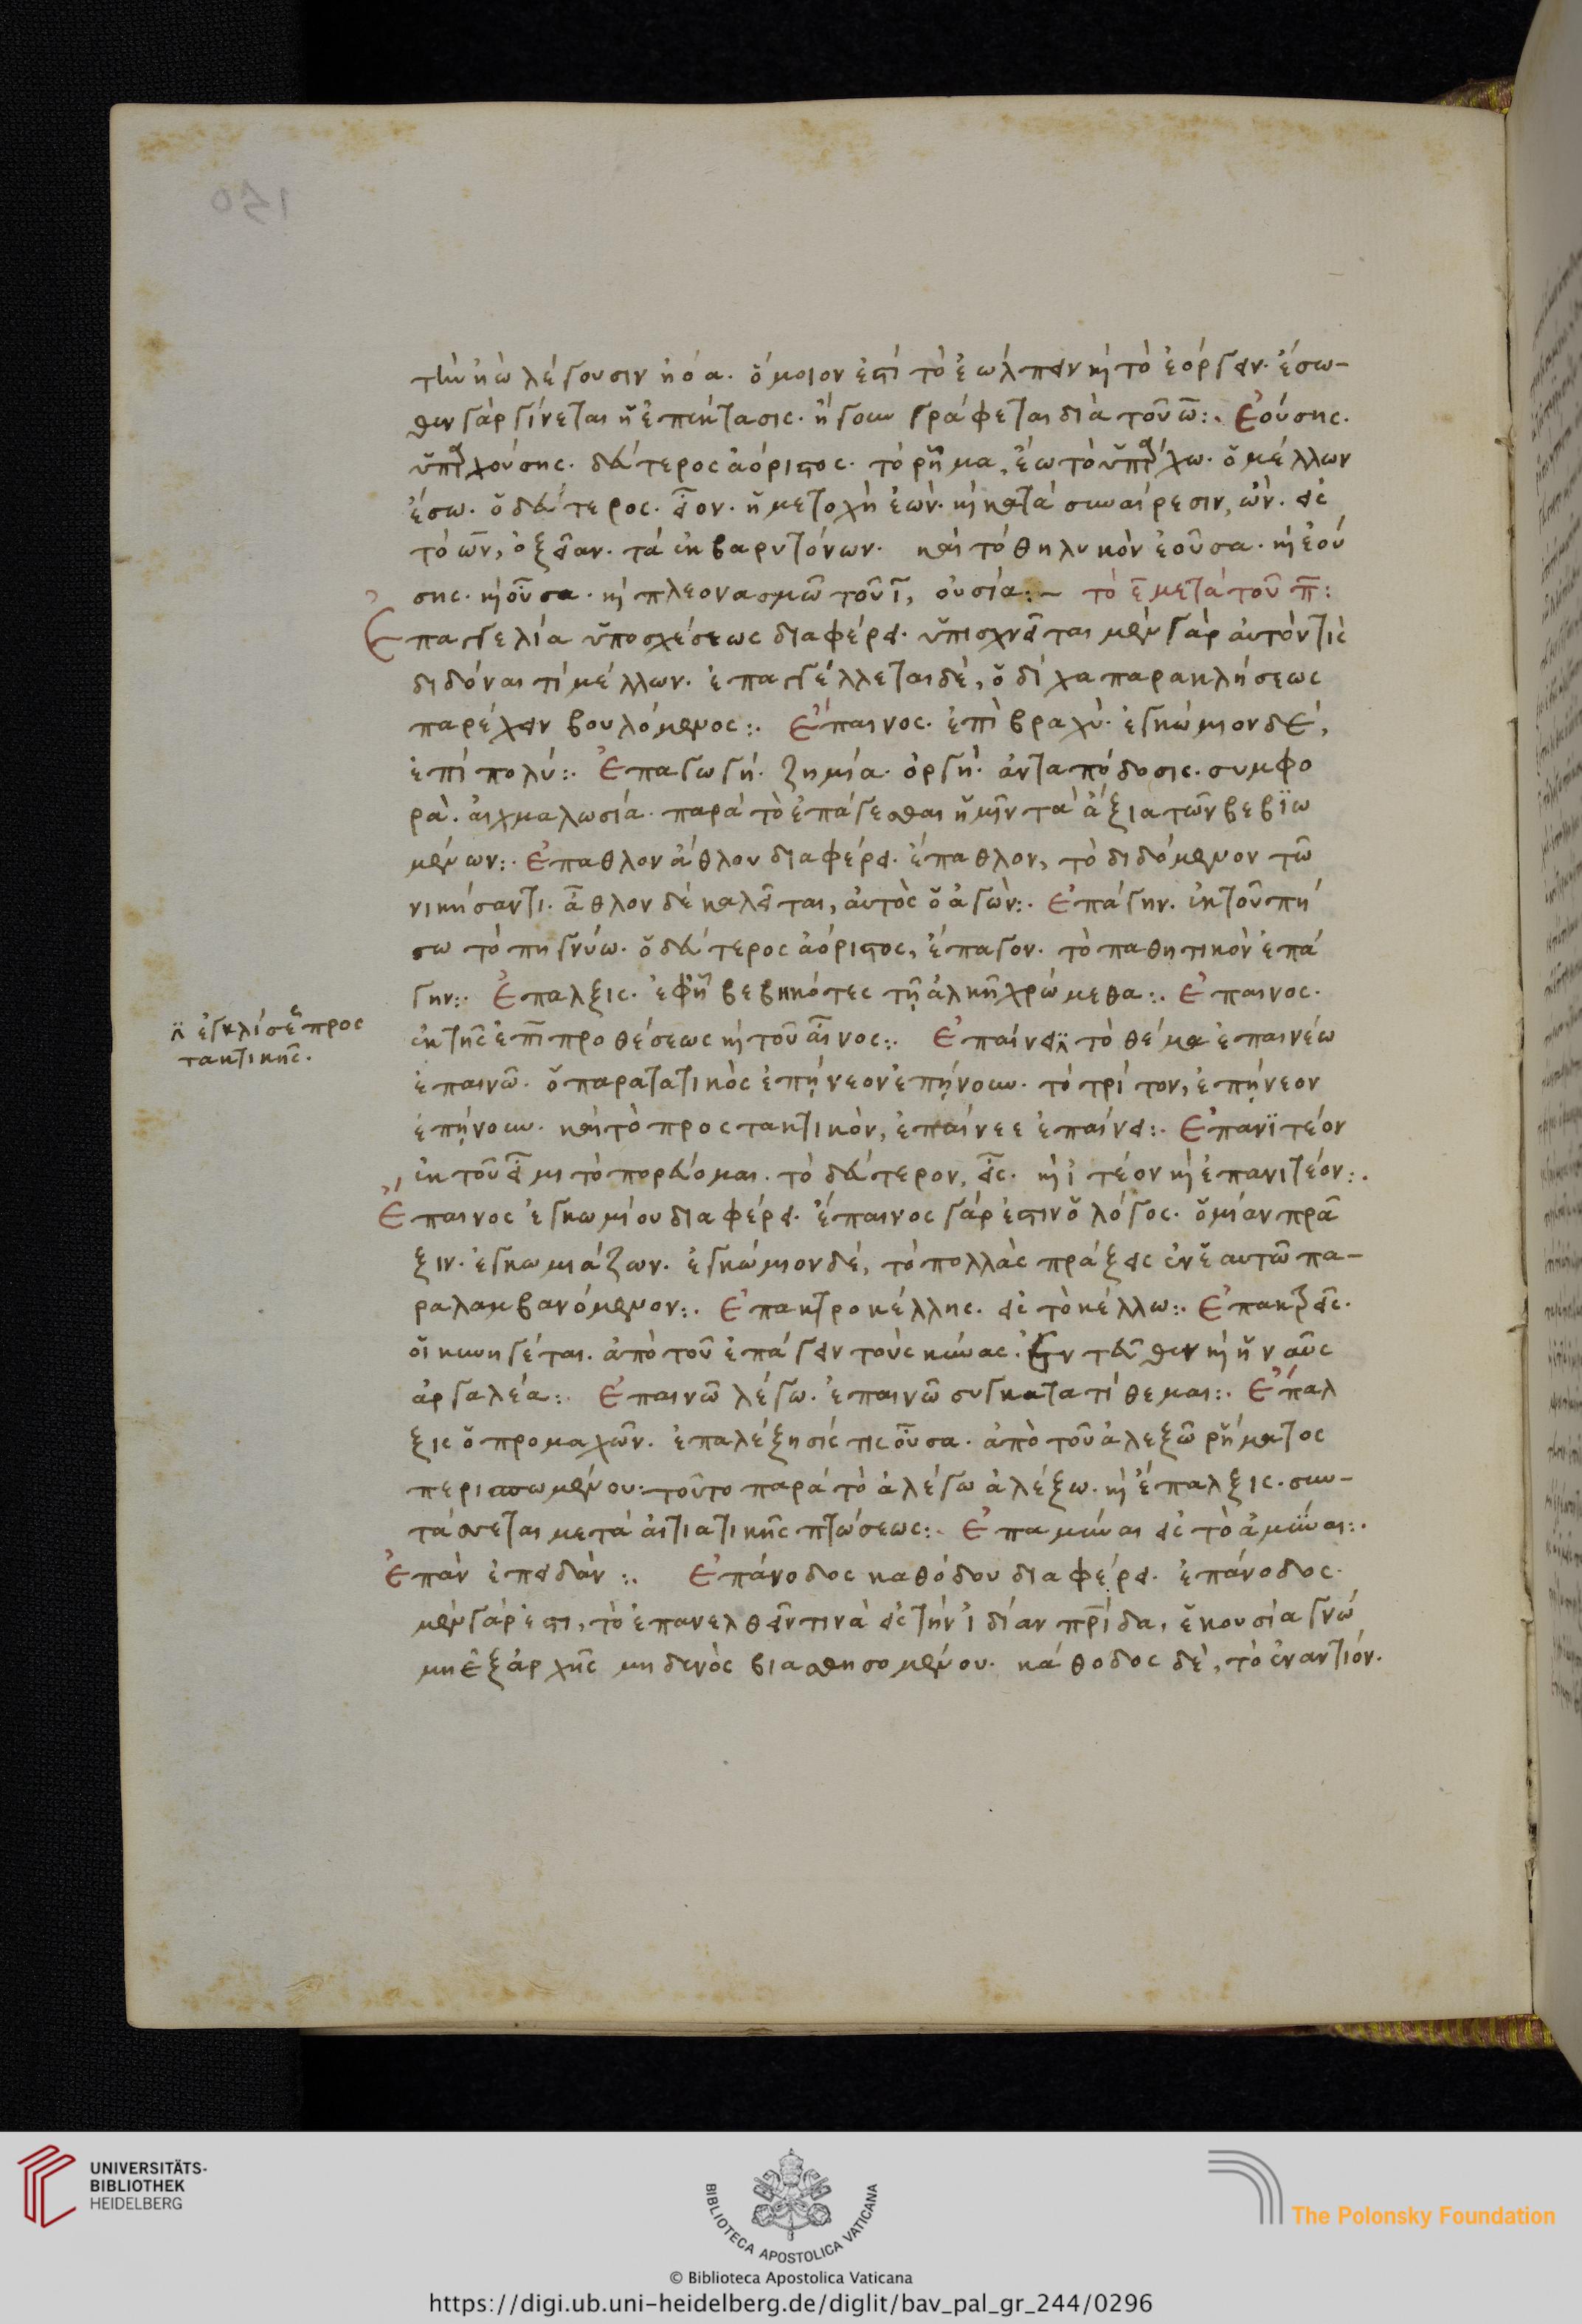 150
τὴν ἠὼ λέγουσιν ἠόα. ὅμοιον ἐστὶ τὸ ἐώλπειν καὶ τὸ ἐόργειν. ἔσω-
θεν γὰρ γίνεται ἡ ἐπέκτασις. ἤγουν γράφεται διὰ τοῦ ω̄:. Ἐούσης.
ὑπαρχούσης. δεύτερος ἀόριστος. τὸ ῥῆμα, ἔω τὸ ὑπάρχω. ὁ μέλλων
ἔσω. ὁ δεύτερος. εἶον. ἡ μετοχὴ ἐών. καὶ κατὰ συναίρεσιν, ὤν. εἰς
τὸ ων, ὀξείαν. τὰ ἐκ βαρυτόνων. καὶ τὸ θηλυκὸν ἐοῦσα. καὶ ἐού
σης. καὶ οὖσα. καὶ πλεονασμῶ τοῦ ῑ, οὐσία:~ τὸ ε̄ μετὰ τοῦ π̄:
Ἐπαγγελία ὑποσχέσεως διαφέρει. ὑπισχνεῖται μὲν γὰρ αὐτόν τις
διδόναι τί μέλλων. ἐπαγγέλλεται δὲ, ὁ δίχα παρακλήσεως
παρέχειν βουλόμενος:. Ἔπαινος. ἐπὶ βραχύ. ἐγκώμιον δέ,
ἐπὶ πολύ:. Ἐπαγωγή. ζημία. ὀργή. ἀνταπόδοσις. συμφο
ρά. αἰχμαλωσία. παρὰ τὸ ἐπάγεσθαι ἡμῖν τὰ ἄξια τῶν βεβϊω
μένων:. Ἔπαθλον ἄθλου διαφέρει. ἔπαθλον, τὸ διδόμενον τῶ
νικήσαντι. ἆθλον δὲ καλεῖται, αὐτὸς ὁ ἀγών:. Ἐπάγην. ἐκ τοῦ πή
σω τὸ πηγνύω. ὁ δεύτερος ἀόριστος, ἔπαγον. τὸ παθητικὸν ἐπά
γην:. Ἔπαλξις. ἐφ' ἧ βεβηκότες τῇ ἀλκῇ χρώμεθα:. Ἔπαινος.
ἐκ τῆς ἐπὶ προθέσεως καὶ τοῦ αἶνος:. Ἐπαίνει τὸ θέμα ἐπαινέω
ἐγκλίσεως προς
τακτικῆς.
ἐπαινῶ. ὁ παρατατικὸς ἐπῄνεον ἐπῄνουν. τὸ τρίτον, ἐπῄνεον
ἐπῄνουν. καὶ τὸ προστακτικὸν, ἐπαίνεε ἐπαίνει:. Ἐπανϊτέον
ἐκ τοῦ εἶμι τὸ πορεύομαι. τὸ δεύτερον, εἶς. καὶ ἰτέον καὶ ἐπανιτέον:.
Ἔπαινος ἐγκωμίου διαφέρει. ἔπαινος γάρ ἐστιν ὁ λόγος. ὁ μίαν πρᾶ
ξιν. ἐγκωμιάζων. ἐγκώμιον δέ, τὸ πολλὰς πράξεις ἐν ἑαυτῶ πα-
ραλαμβανόμενον:. Ἐπακτροκέλλης. εἰς τὸ κέλλω:. Ἐπακτρεῖς.
οἱ κυνηγέται. ἀπὸ τοῦ ἐπάγειν τοὺς κύνας. ἐντεῦθεν καὶ ἡ ναῦς
ἀργαλέα:. Ἐπαινῶ λέγω. ἐπαινῶ συγκατατίθεμαι:. Ἔπαλ
ξις ὁ προμαχῶν. ἐπαλέξησίς τις οὖσα. ἀπὸ τοῦ ἀλεξῶ ῥήματος
περισπωμένου: τοῦτο παρὰ τὸ ἀλέγω ἀλέξω. καὶ ἔπαλξις. συν-
τάσσεται μετὰ αἰτιατικῆς πτώσεως:. Ἐπαμύναι εἰς τὸ ἀμύναι:.
Ἐπὰν ἐπειδάν:. Ἐπάνοδος καθόδου διαφέρει. ἐπάνοδος.
μὲν γάρ ἐστι, τὸ ἐπανελθεῖν τινὰ εἰς τὴν ἰδίαν πρίδα, ἑκουσία γνώ
μη ἐξ ἀρχῆς μηδενὸς βιασθησομένου. κάθοδος δὲ, τὸ ἐναντίον.
UNIVERSITÄTS-
BIBLIOTHEK
HEIDELBERG
BIBLIOTECA APOSTOLICA VATICANA
The Polonsky Foundation
© Biblioteca Apostolica Vaticana
https://digi.ub.uni-heidelberg.de/diglit/bav_pal_gr_244/0296